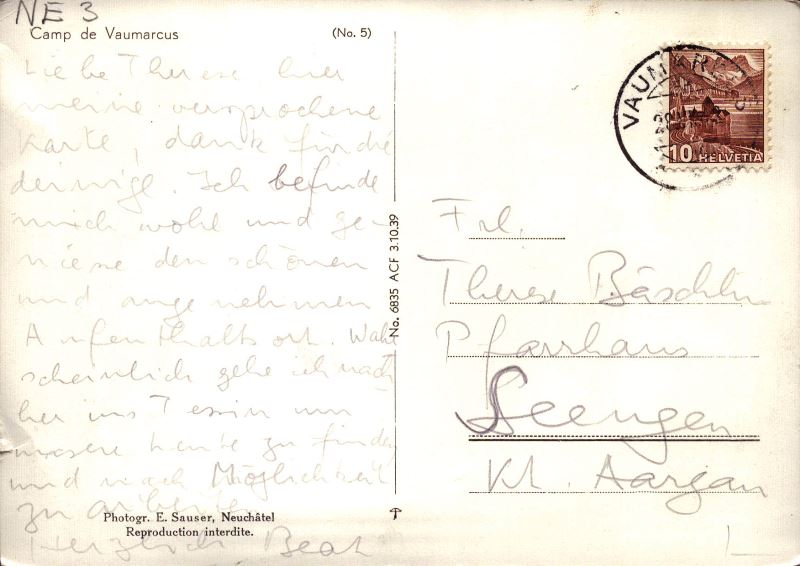 NE 3
Camp de Vaumarcus (No. 5)
Liebe Therese hier
meine versprochene
Karte, danke für die
deinige. Ich befinde
mich wohl und ge-
niese den schönen
und angenehmen
Aufenthaltsort. Wahr
scheinlich gehe ich nach
her ins Tessin um
unsere Leute zu finden
und nach Möglichkeit
zu arbeiten
Herzlich Beat
Photogr. E. Sauser, Neuchâtel
Reproduction interdite.
No. 6835 ACF 3.10.39
VAUMARCUS
10 HELVETIA
Frl.
Therese
Pfarrhaus
Seengen
Kt. Aargau